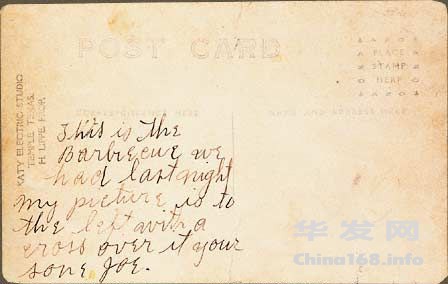 POST CARD
PLACE
STAMP
HERE
KATY ELECTRIC STUDIO
TEMPLE TEXAS.
H. LIPPE PROP.
CORRESPONDENCE HERE
NAME AND ADDRESS HERE
This is the
Barbecue we
had last night
my picture is to
the left with a
cross over it your
sone Joe.
华发网
China168.info